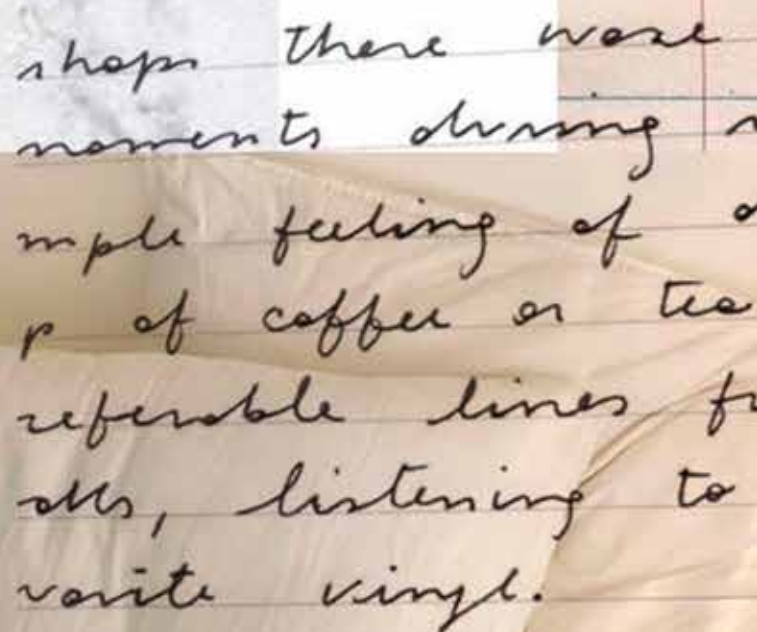 shops there were
moments during
mple feeling of a
p of coffee or tea
referable lines fr
alls, listening to
vorite vinyl.